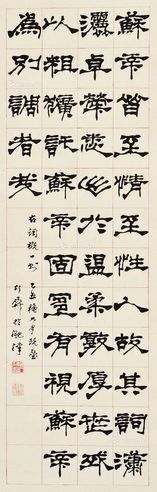 蘇辛皆至情至性人故其詞瀟
灑卓犖悉出於溫柔敦厚世或
以粗獷託蘇辛固宜有視蘇辛
為別調者哉
右詞概一則